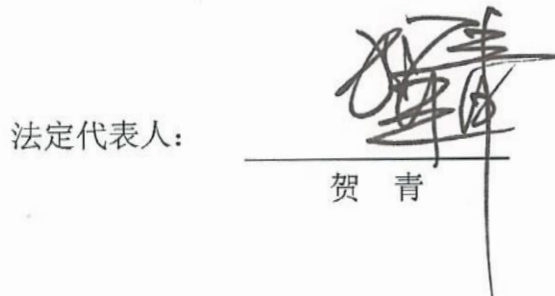 法定代表人：
贺 青